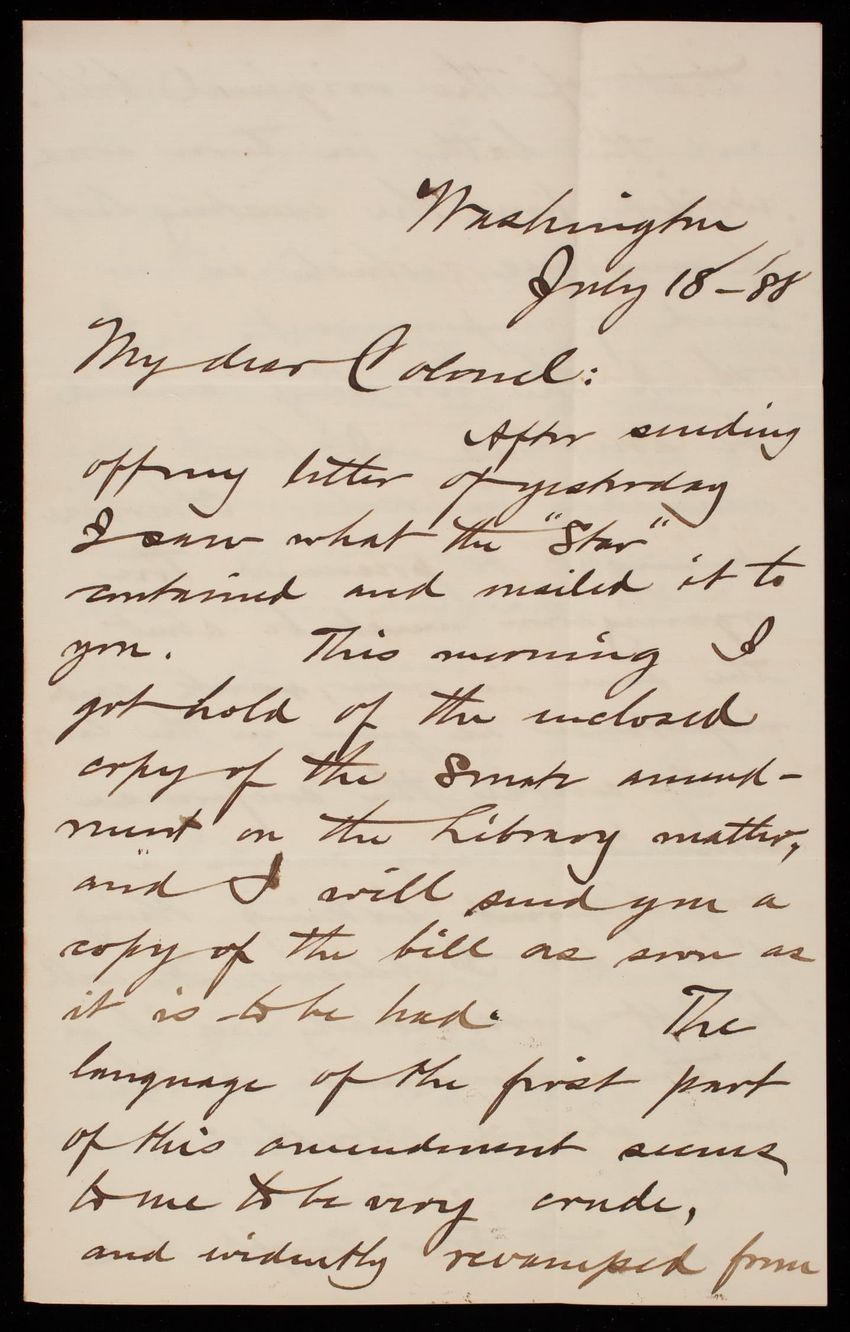 Washington
July 18-'88
My dear Colonel:
After sending
off my letter of yesterday
I saw what the "Star"
contained and mailed it to
you. This morning I
got hold of the inclosed
copy of the Senate amend-
ment on the Library matter,
and I will send you a
copy of the bill as soon as
it is to be had. The
language of the first part
of this amendment seems
to me to be very crude,
and evidently revamped from